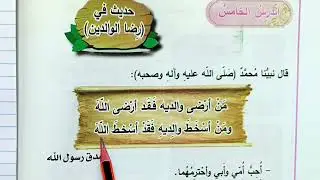 الدرس الخامس
حديث في
(رضا الوالدين)
قال نبينا محمد (صلى الله عليه وآله وصحبه):
من أرضى والديه فقد أرضى الله
ومن أسخط والديه فقد أسخط الله
صدق رسول الله
- أحب أمي وأبي وأحترمهما.